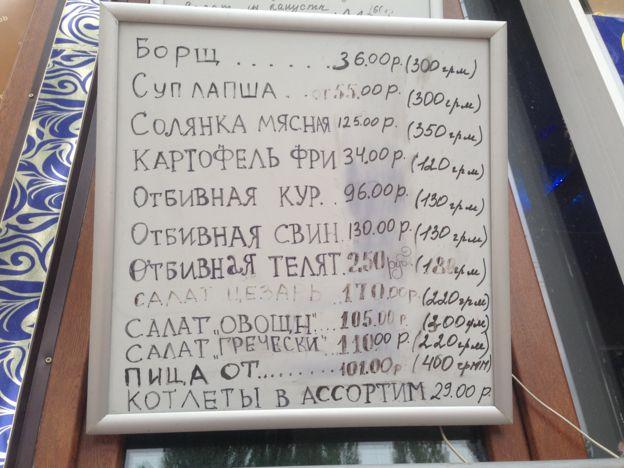 Борщ ....... 36.00р. (300 грм)
Суп лапша .. от 55.00р. (300 грм)
Солянка мясная 125.00 р. (350 грм)
Картофель фри 34.00 р. (120 грм)
Отбивная кур.. 96.00 р. (130 грм)
Отбивная свин. 130.00 р. (130 грм)
Отбивная телят. 250 руб (180 грм)
Салат цезарь 170.00р. (220 грм)
Салат „Овощн"... 105.00 р. (200 грм)
Салат „Гречески" 110 00 р. (220 грм)
Пица от......... 101.00р (400 грмм)
Котлеты в ассортим 29.00 р.